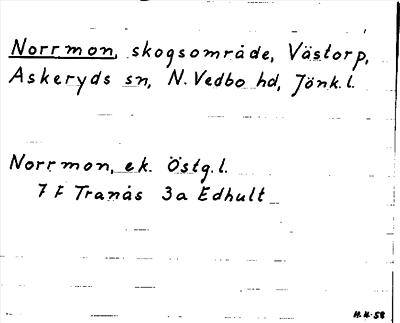 Norrmon, skogsområde, Västorp,
Askeryds sn, N. Vedbo hd, Jönk. l.
Norrmon, ek. Östg. l.
7 F Tranås 3a Edhult